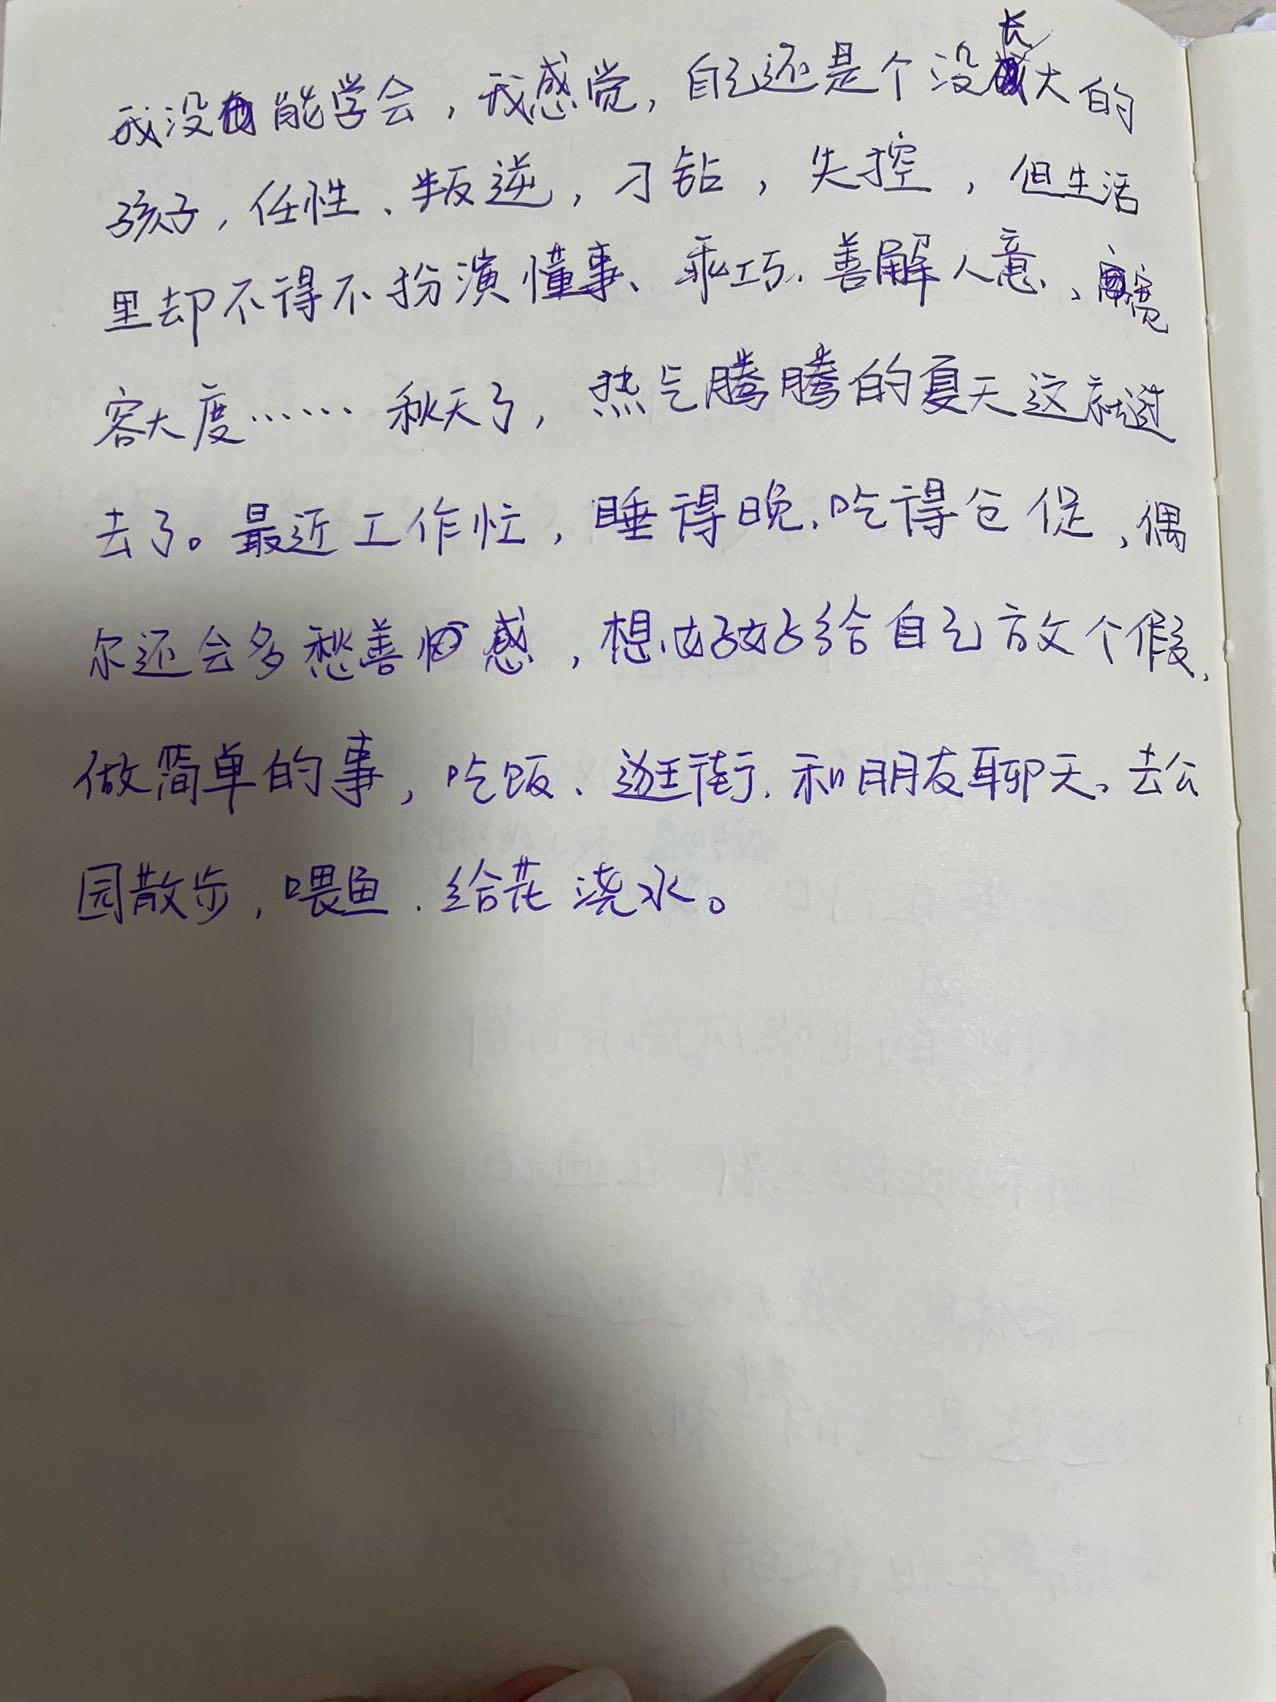 我没能学会，我感觉，自己还是个没长大的
孩子，任性、叛逆，刁钻，失控，但生活
里却不得不扮演懂事、乖巧、善解人意、宽
容大度……秋天了，热气腾腾的夏天这就过
去了。最近工作忙，睡得晚、吃得仓促，偶
尔还会多愁善感，想好好给自己放个假，
做简单的事，吃饭、逛街、和朋友聊天、去公
园散步，喂鱼、给花浇水。